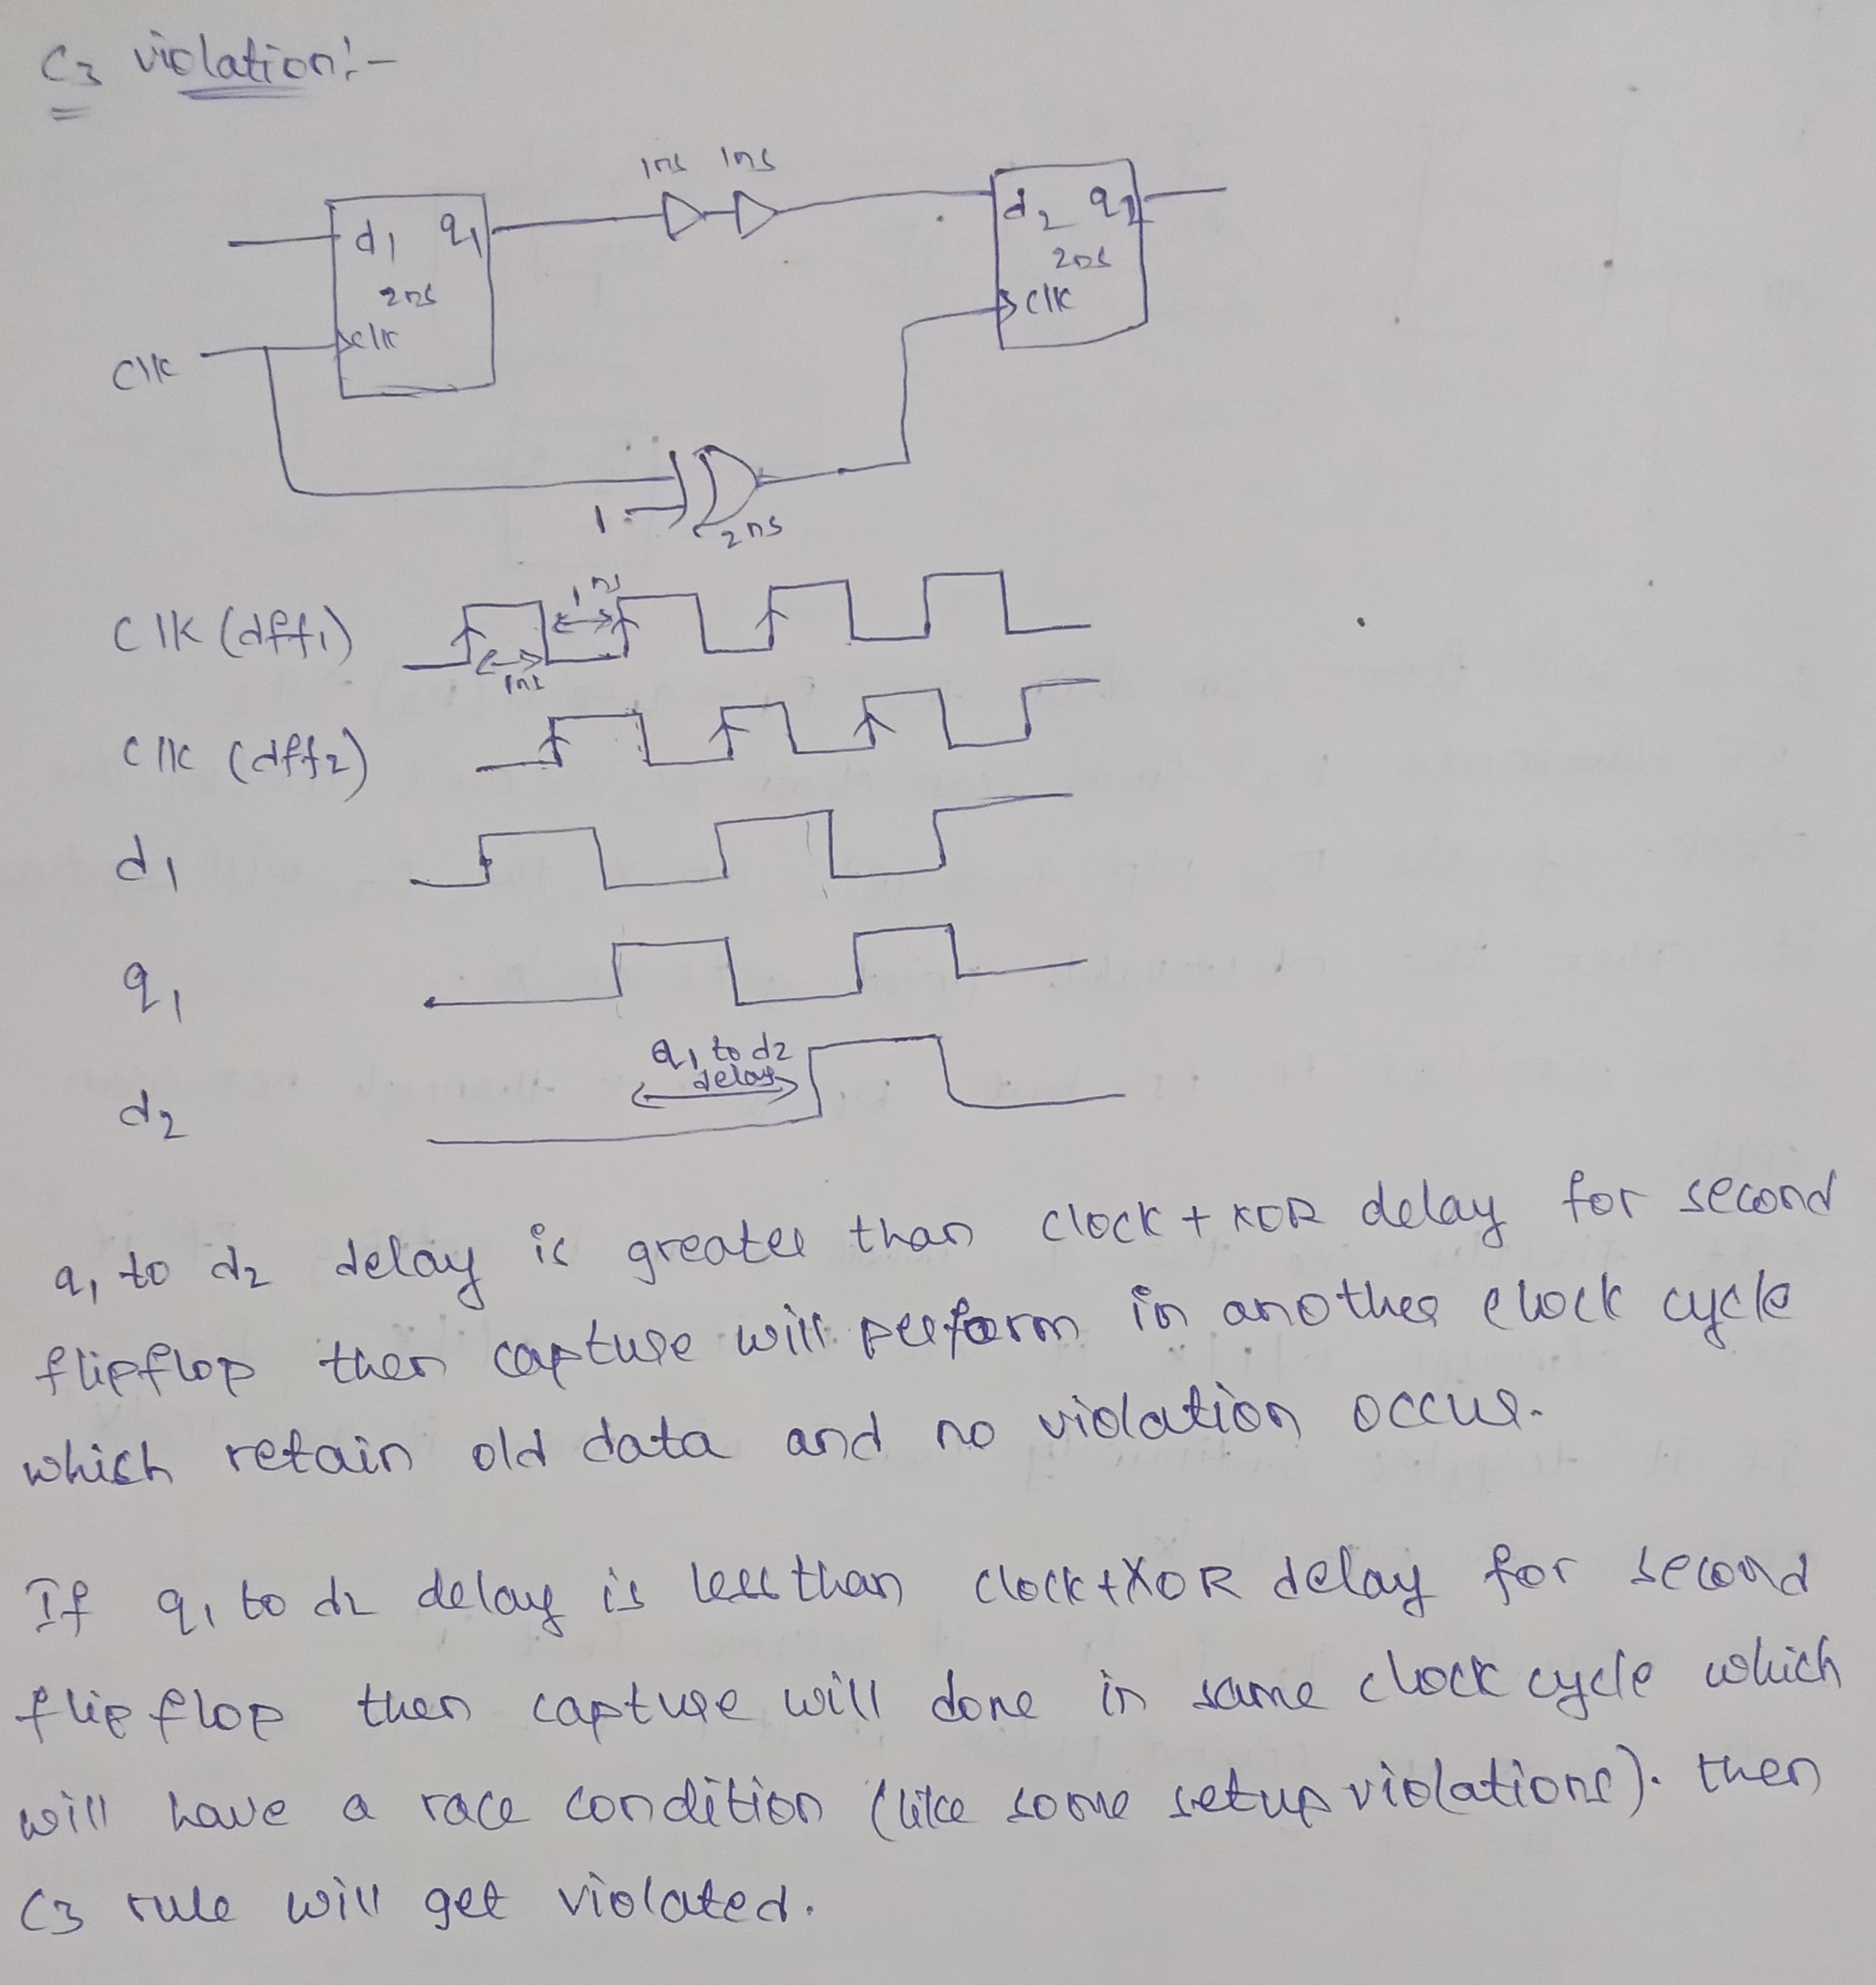 C3 violation:-
1ns 1ns
d1 q1
2ns
clk
d2 q2
2ns
clk
Clk
1
2ns
Clk (dff1)
1ns
1ns
Clk (dff2)
d1
q1
q1 to d2
delay
d2
q1 to d2 delay is greater than clock + XOR delay for second
flipflop then capture will perform in another clock cycle
which retain old data and no violation occur.
If q1 to d2 delay is less than clock+XOR delay for second
flip flop then capture will done in same clock cycle which
will have a race condition (like some setup violations). then
C3 rule will get violated.